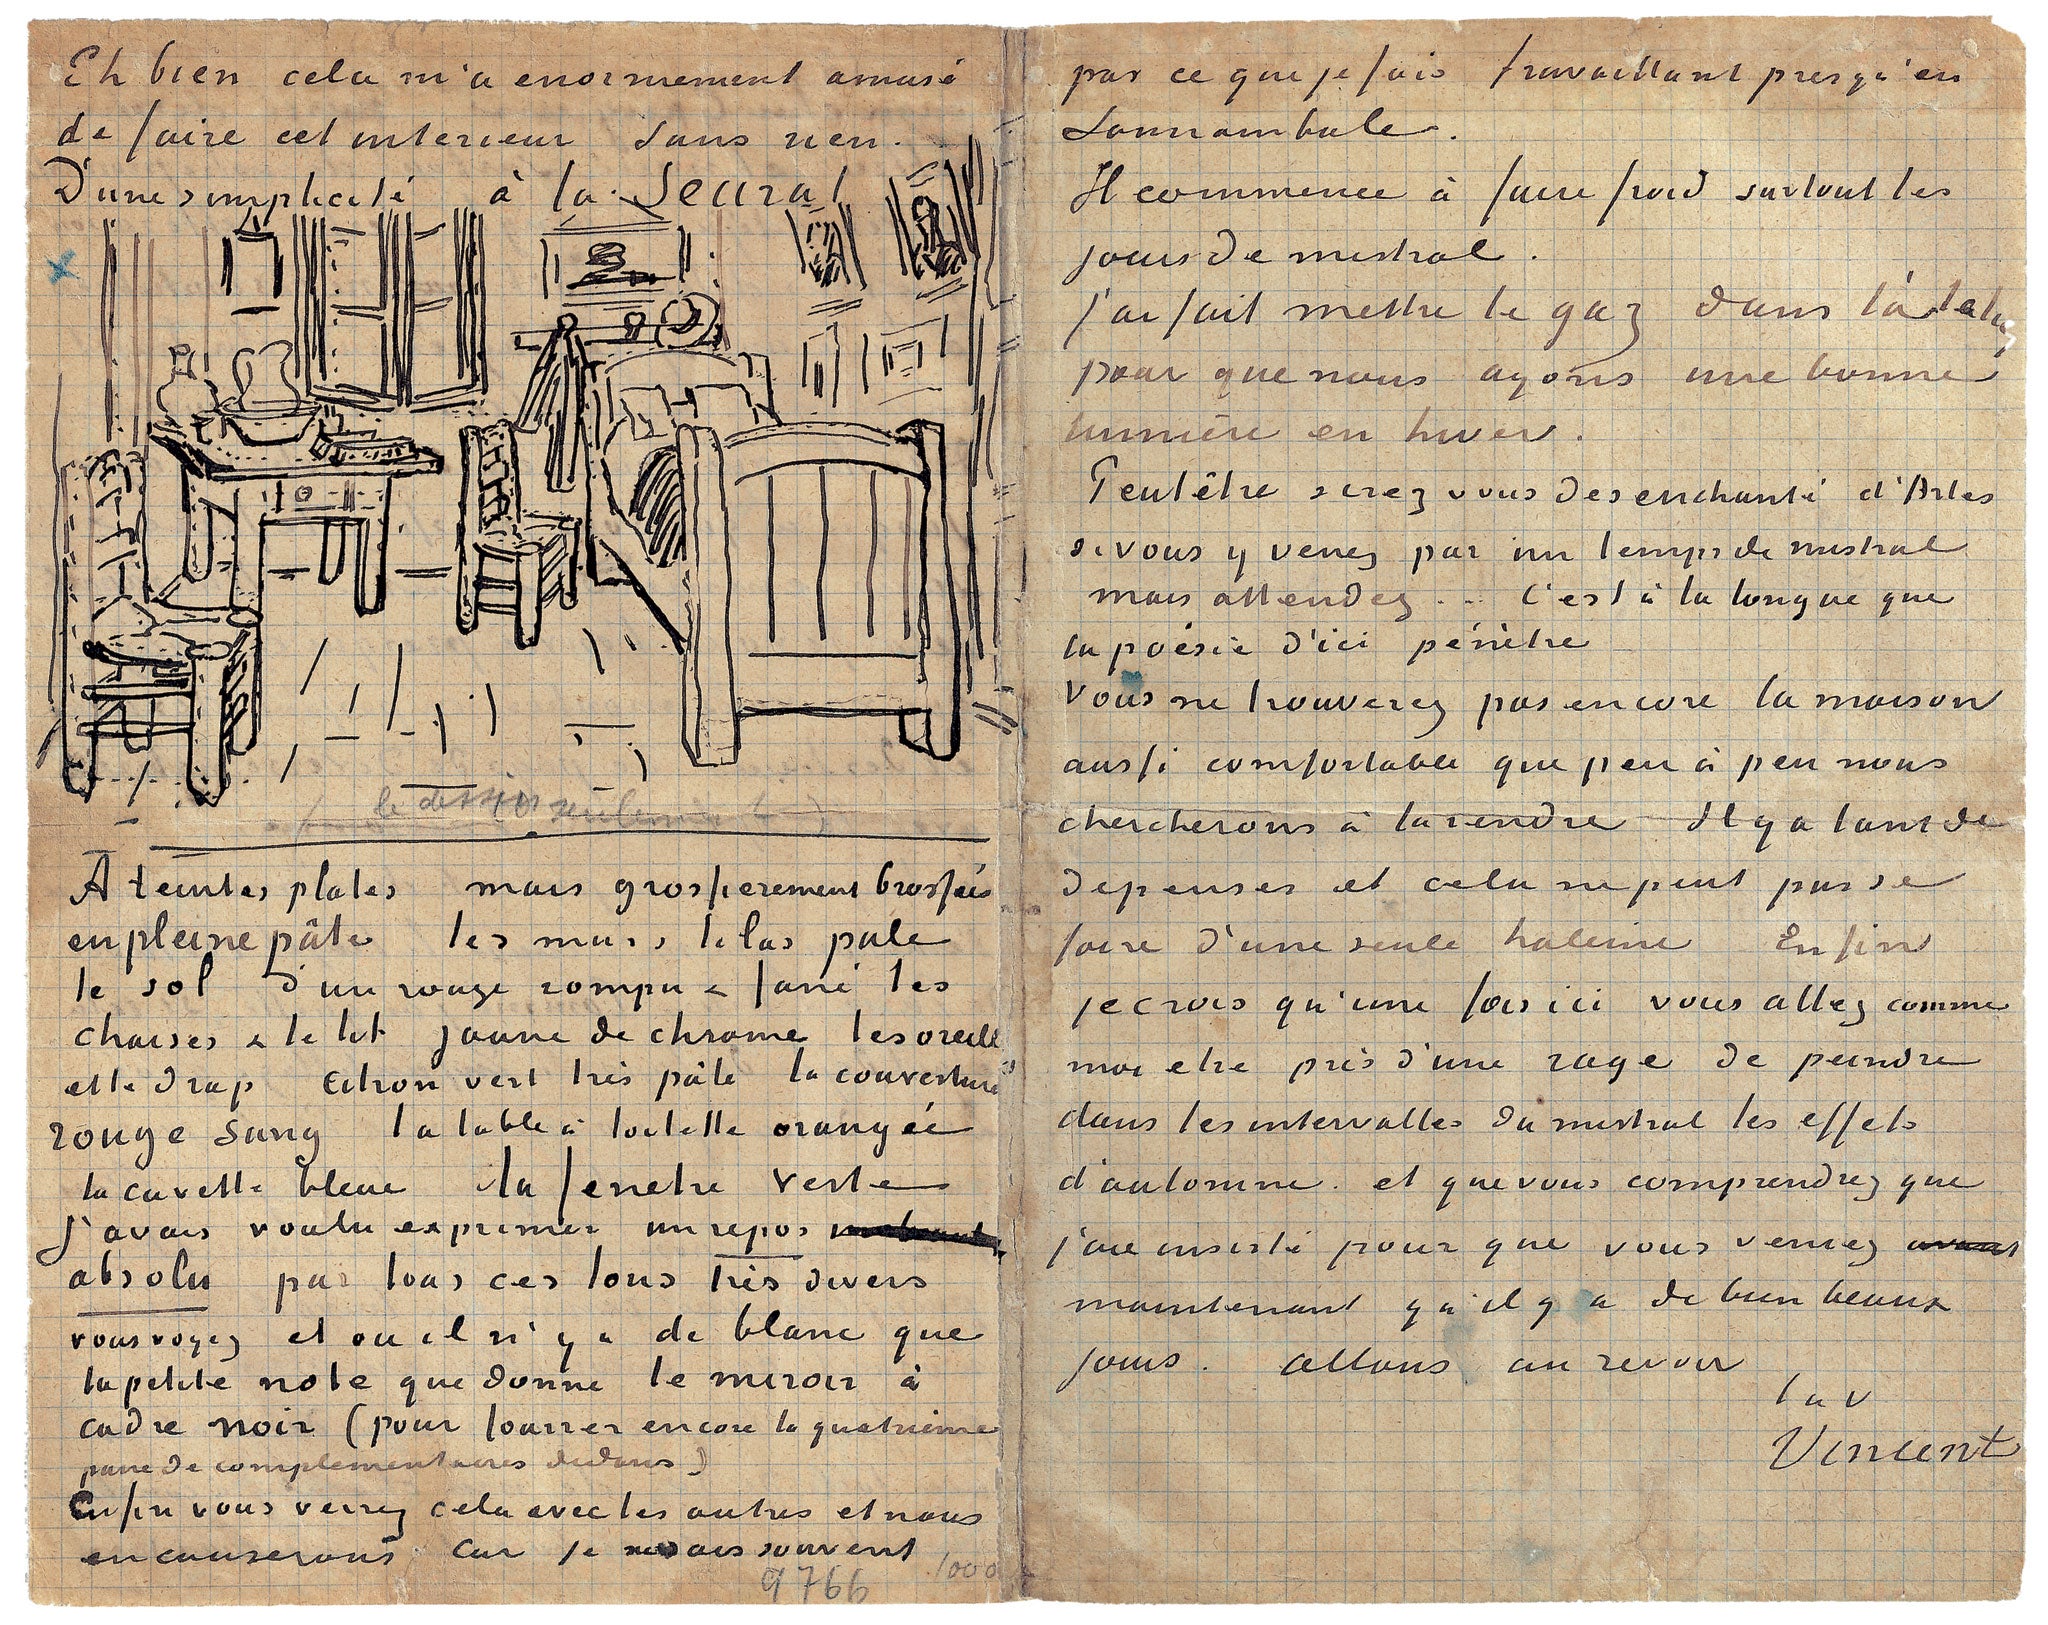 Eh bien cela m'a enormement amusé
de faire cet interieur sans rien.
D'une simplicité à la Seurat
le dessin seulement
A teintes plates mais grossierement brossées
en pleine pâte les murs lilas pale
le sol d'un rouge rompu & fané les
chaises & le lit jaune de chrome les oreillers
et le drap citron vert très pâle la couverture
rouge sang la table à toilette orangée
la cuvette bleue la fenetre verte
J'avais voulu exprimer un repos
absolu par tous ces tons très divers
vous voyez et ou il n'y a de blanc que
la petite note que donne le miroir à
cadre noir (pour fourrer encore la quatrième
paire de complementaires dedans)
Enfin vous verrez cela avec les autres et nous
en causerons car je ne sais souvent
9766
1000
par ce que je fais travaillant presqu'en
somnambule.
Il commence à faire froid surtout les
jours de mistral.
J'ai fait mettre le gaz dans l'atelier
pour que nous ayons une bonne
lumière en hiver.
Peutêtre serez vous desenchanté d'Arles
si vous y venez par un temps de mistral
mais attendez .. C'est à la longue que
la poésie d'ici pénètre
Vous ne trouverez pas encore la maison
aussi comfortable que peu à peu nous
chercherons à la rendre Il y a tant de
depenses et cela ne peut pas se
faire d'une seule haleine Enfin
je crois qu'une fois ici vous allez comme
moi etre pris d'une rage de peindre
dans les intervalles du mistral les effets
d'automne. et que vous comprendrez que
j'aie insisté pour que vous veniez avant
maintenant qu'il y a de bien beaux
jours. allons au revoir
t à v
Vincent